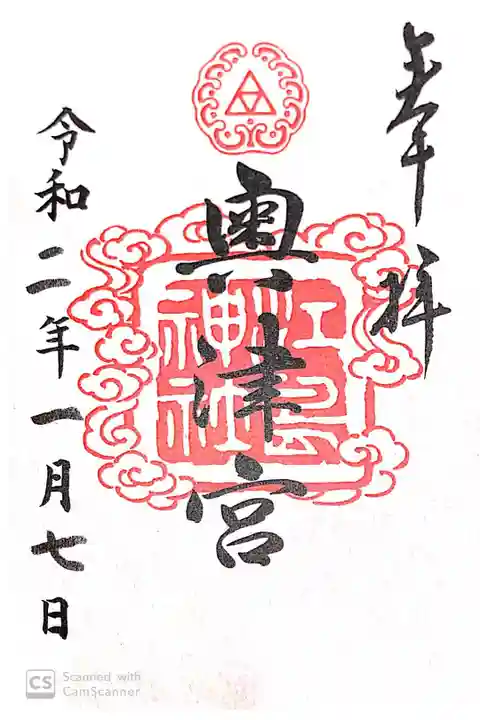 奉拝
奥津宮
江島
神社
令和二年一月七日
CS Scanned with
CamScanner